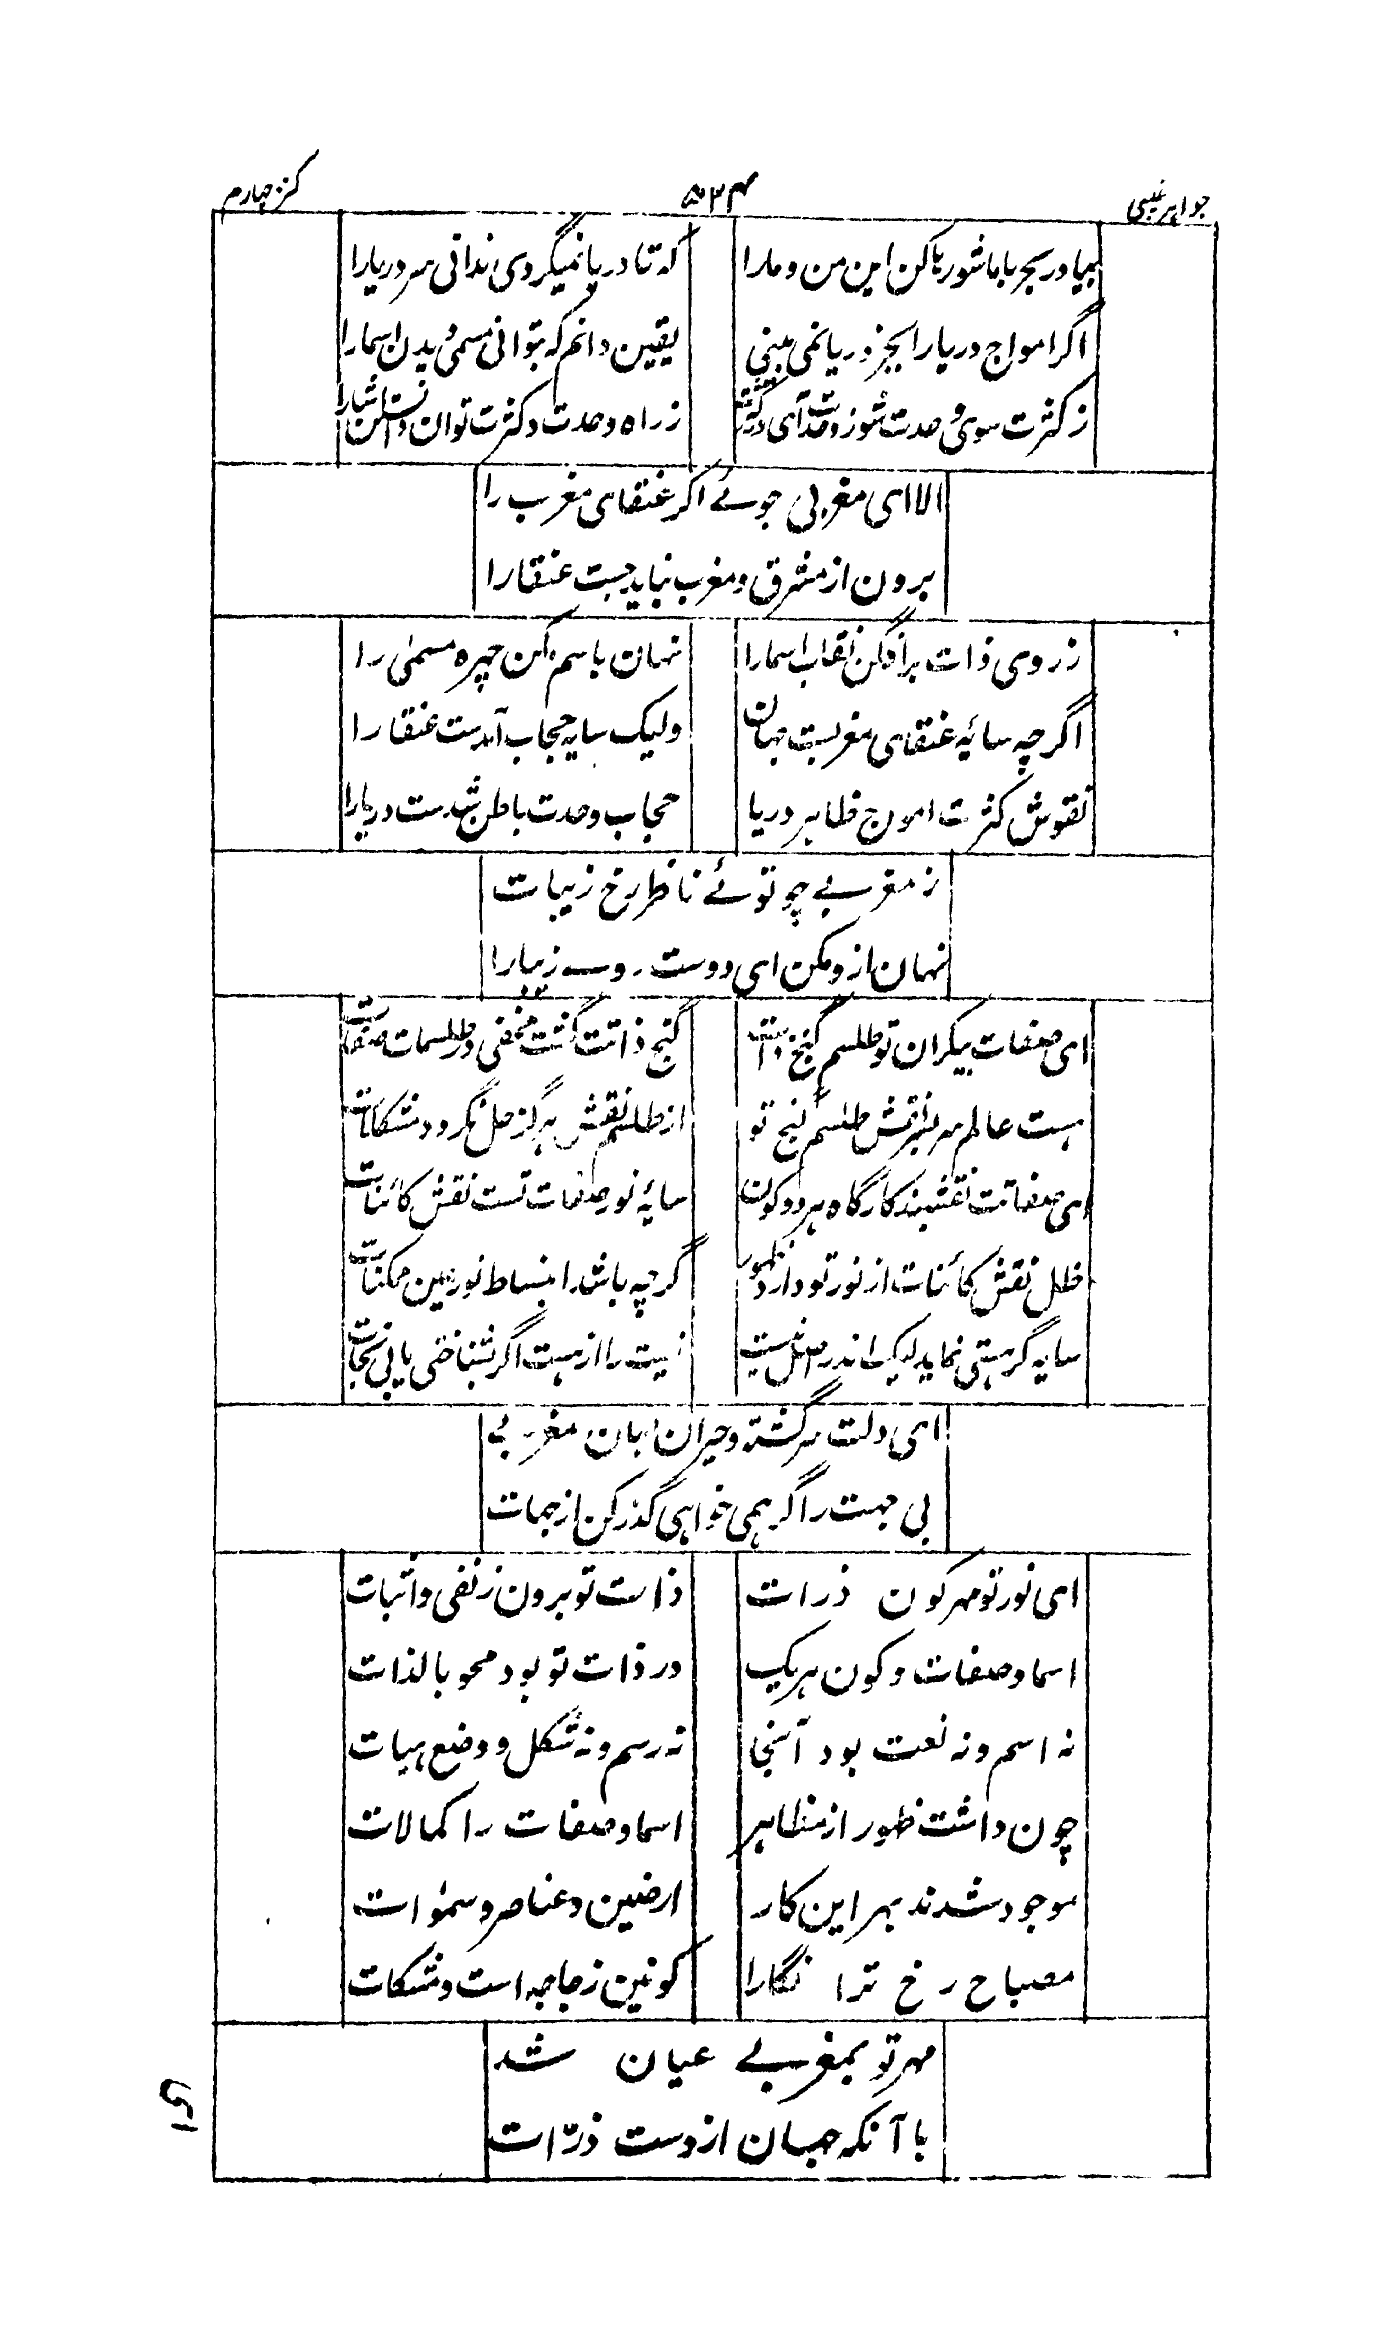 جواہر غیبی ۵۲۴ کنز چہارم
بیا در بحر باما شو رہا کن این من و ما را که تا دریا نمیگردی ندانی سر دریا را
اگر امواج دریا را بجز دریا نمی بینی یقین دانم که بتوانی مسمی دیدن اسما را
ز کثرت سوی وحدت شو ز وحدت آی در کثرت ز راه وحدت و کثرت توان دانستن اشیا را
الا ای مغربی جوئے اگر عنقای مغرب را
برون از مشرق و مغرب نباید جست عنقا را
ز روی ذات برافگن نقاب اسما را نهان باسم مکن چهره مسمیٰ را
اگر چه سائه عنقای مغربست جهان ولیک سایه حجاب آمدست عنقا را
نقوش کثرت امواج ظاہر دریا حجاب وحدت باطن شدست دریا را
ز مغربے چو توئے ناظر رخ زیبات
نہان ازو مکن ای دوست روے زیبا را
ای صفات بیکران تو طلسم گنج ذات گنج ذاتت گشت مخفی در طلسمات صفات
ہست عالم سر بسر نقش طلسم گنج تو از طلسم نقش ہرگز حل نگردد مشکلات
ای صفاتت نقشبند کارگاه ہر دو کون سایۂ نور صفات تست نقش کائنات
ظل نقش کائنات از نور تو دارد ظهور گرچه باشد انبساط نور عین ممکنات
سایه گر ہستی نماید لیک اندر اصل نیست نیست را از ہست اگر بشناختی یابی نجات
ای دلت سرگشته و حیران بان مغربی
بی جہت را گر ہمی خواہی گذر کن از جہات
ای نور تو مہر کون ذرات ذات تو برون ز نفی و اثبات
اسما و صفات و کون ہریک در ذات تو بود محو بالذات
نه اسم و نه نعت بود آنجا نه رسم و نه شکل و وضع ہیات
چون داشت ظهور از مظاہر اسما و صفات را کمالات
موجود شدند بہر این کار ارضین و عناصر و سمٰوات
مصباح رخ ترا نگارا کونین زجاجه است و مشکات
مہر تو بمغربے عیان شد
با آنکه جہان ازوست ذرّات